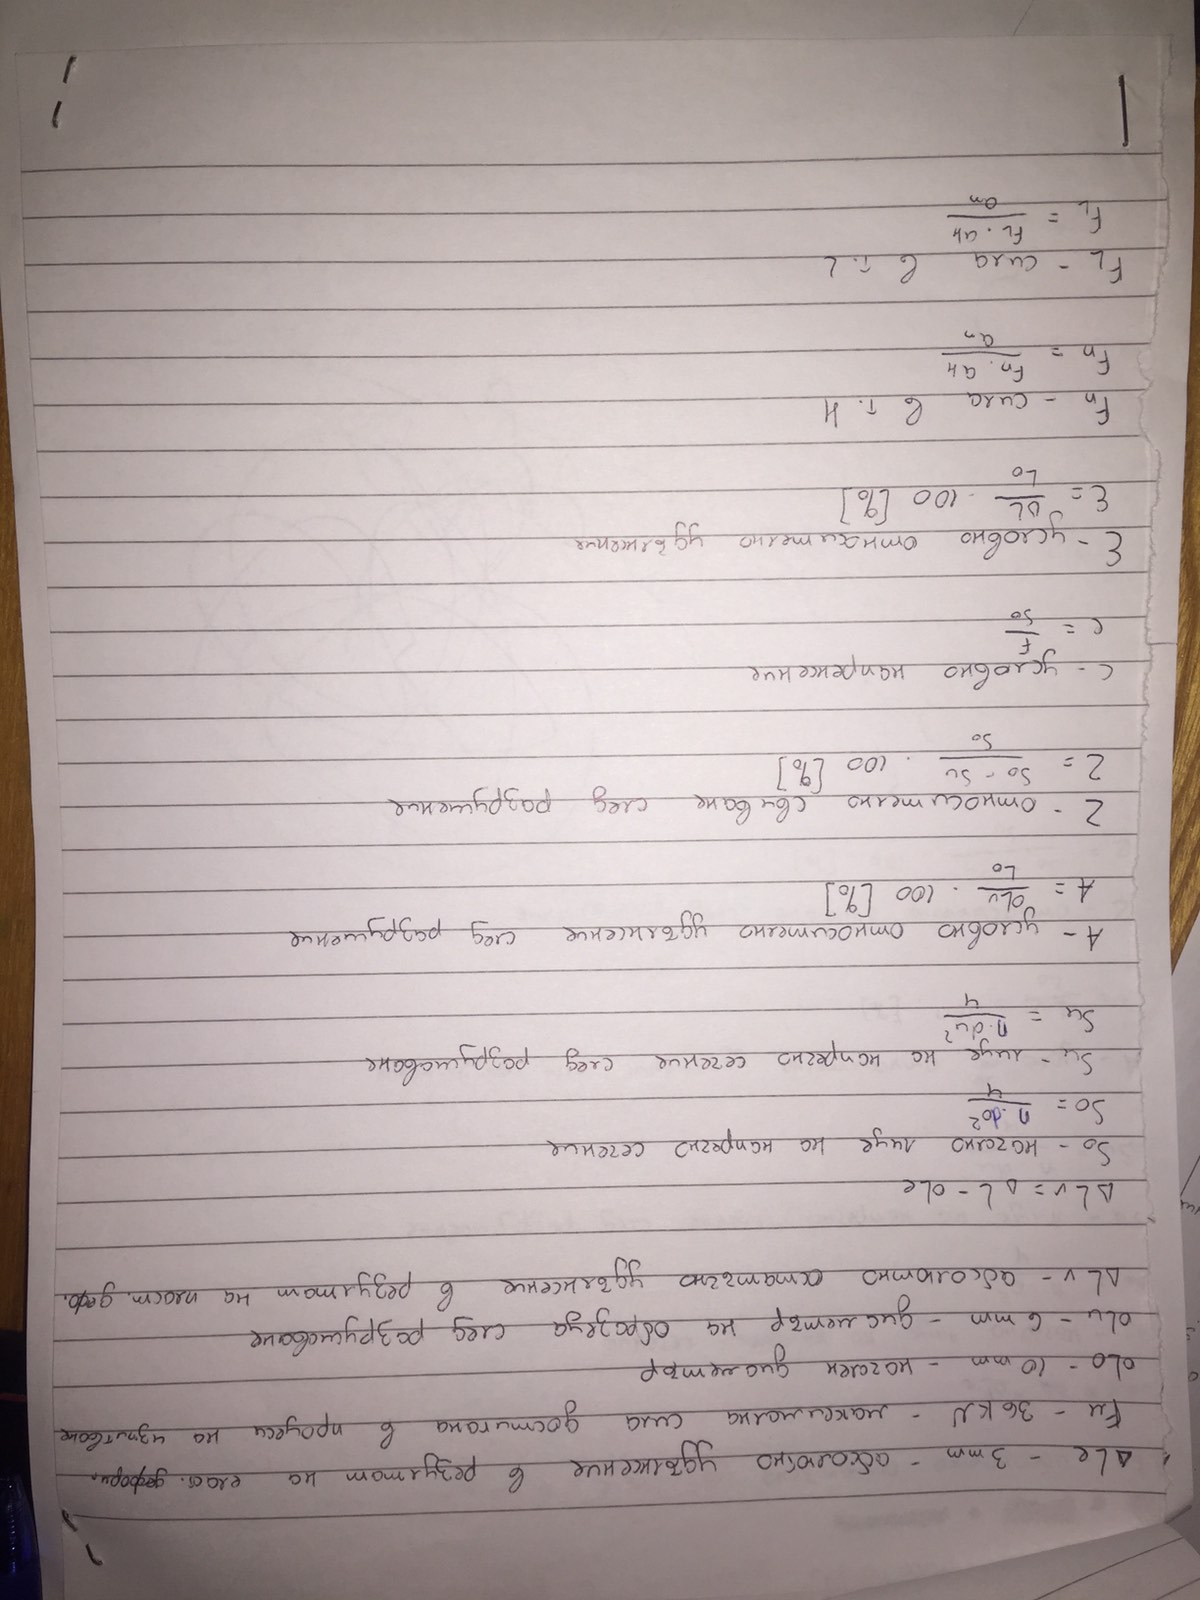 ΔLe - 3mm - абсолютно удължение в резултат на еласт. деформ.
Fm - 36 kN - максимална сила достигана в процеси на изпитване
do - 10 mm - начален диаметър
du - 6 mm - диаметър на образеца след разрушаване
ΔLv - абсолютно остатъчно удължение в резултат на пласт. деф.
ΔLv = ΔL - ΔLe
So - начално лице на напречно сечение
So = π.do² / 4
Su - лице на напречно сечение след разрушаване
Su = π.du² / 4
A - условно относително удължение след разрушение
A = ΔLv / Lo . 100 [%]
Z - относително свиване след разрушение
Z = So - Su / So . 100 [%]
С - условно напрежение
с = F / So
Ɛ - условно относително удължения
Ɛ = ΔL / Lo . 100 [%]
Fn - сила в т. H
Fn = Fn . aн / an
FL - сила в т. L
FL = FL . aн / an